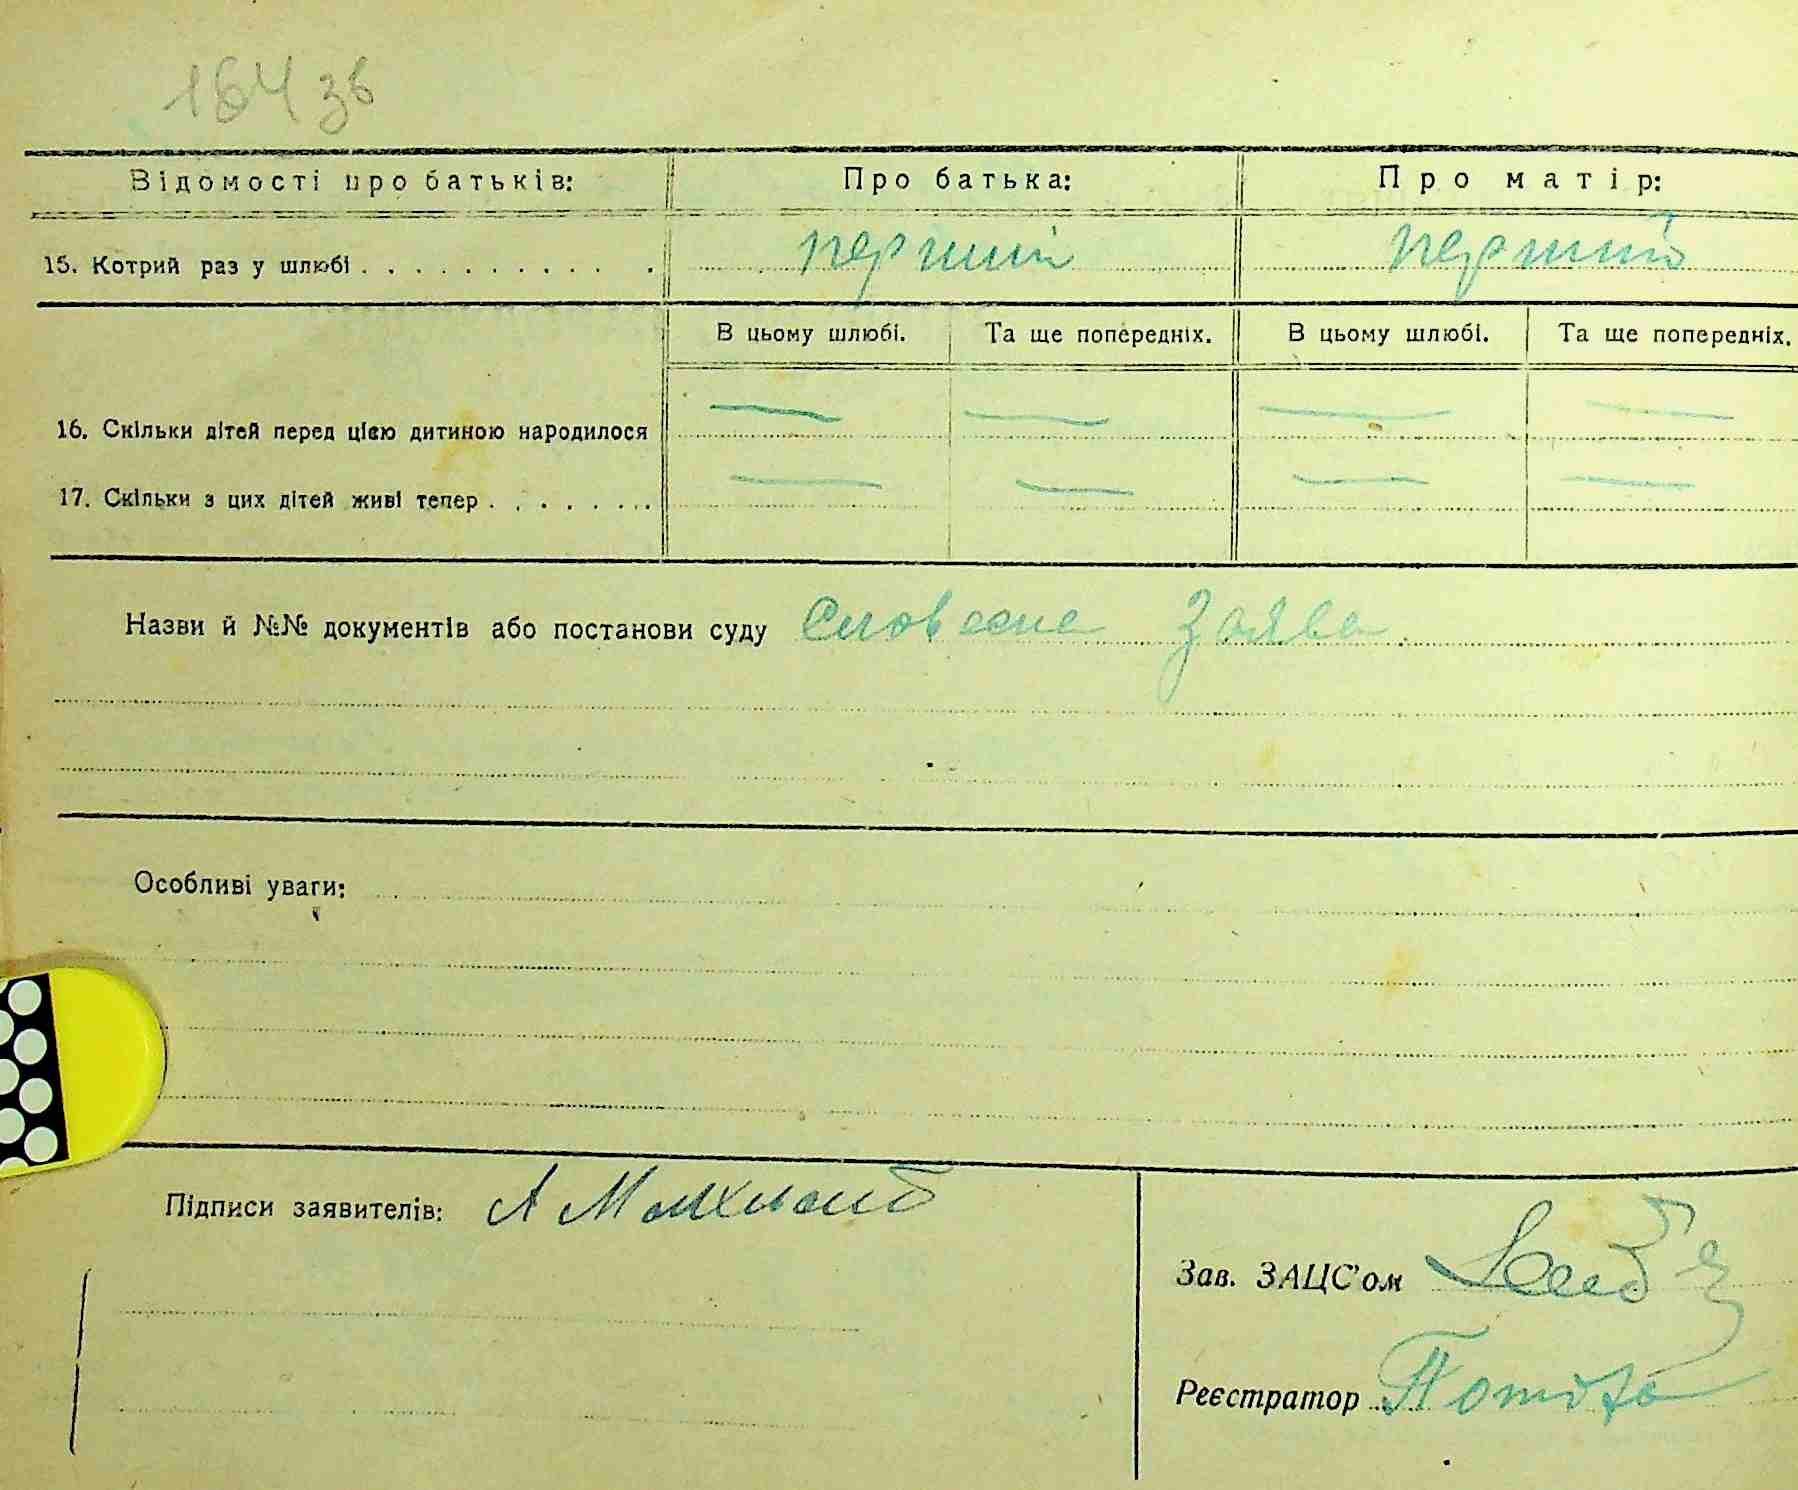 164 зв
Відомості про батьків: Про батька: Про матір:
15. Котрий раз у шлюбі . . . . . . . . . . . перший перший
В цьому шлюбі. Та ще попередніх. В цьому шлюбі. Та ще попередніх.
16. Скільки дітей перед цією дитиною народилося — — — —
17. Скільки з цих дітей живі тепер . . . . . . . . — — — —
Назви й №№ документів або постанови суду Словесна Заява.
Особливі уваги:
Підписи заявителів: А
Зав. ЗАЦС'ом
Реєстратор